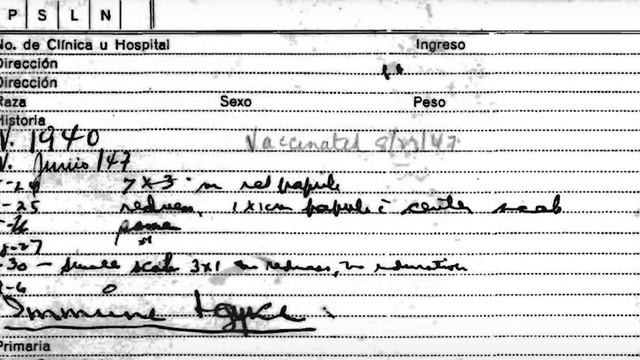 P S L N
No. de Clínica u Hospital Ingreso
Dirección
Dirección
Raza Sexo Peso
Historia
V. 1940 Vaccinated 8/23/47
V. Junio/47
7 x 3 red papule
-25 redness, 1x1 cm papule c center scab
-27
-30 - small scab 3x1 cm redness, no induration
0
Immune type
Primaria